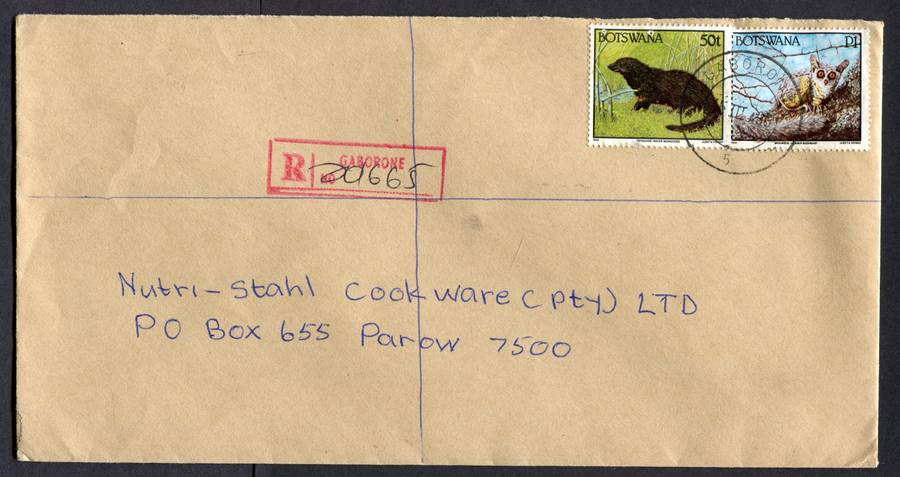 BOTSWANA 50t
BOTSWANA P1
GABORONE
5
R GABORONE
NO 201665
Nutri-Stahl Cookware (Pty) LTD
PO Box 655 Parow 7500